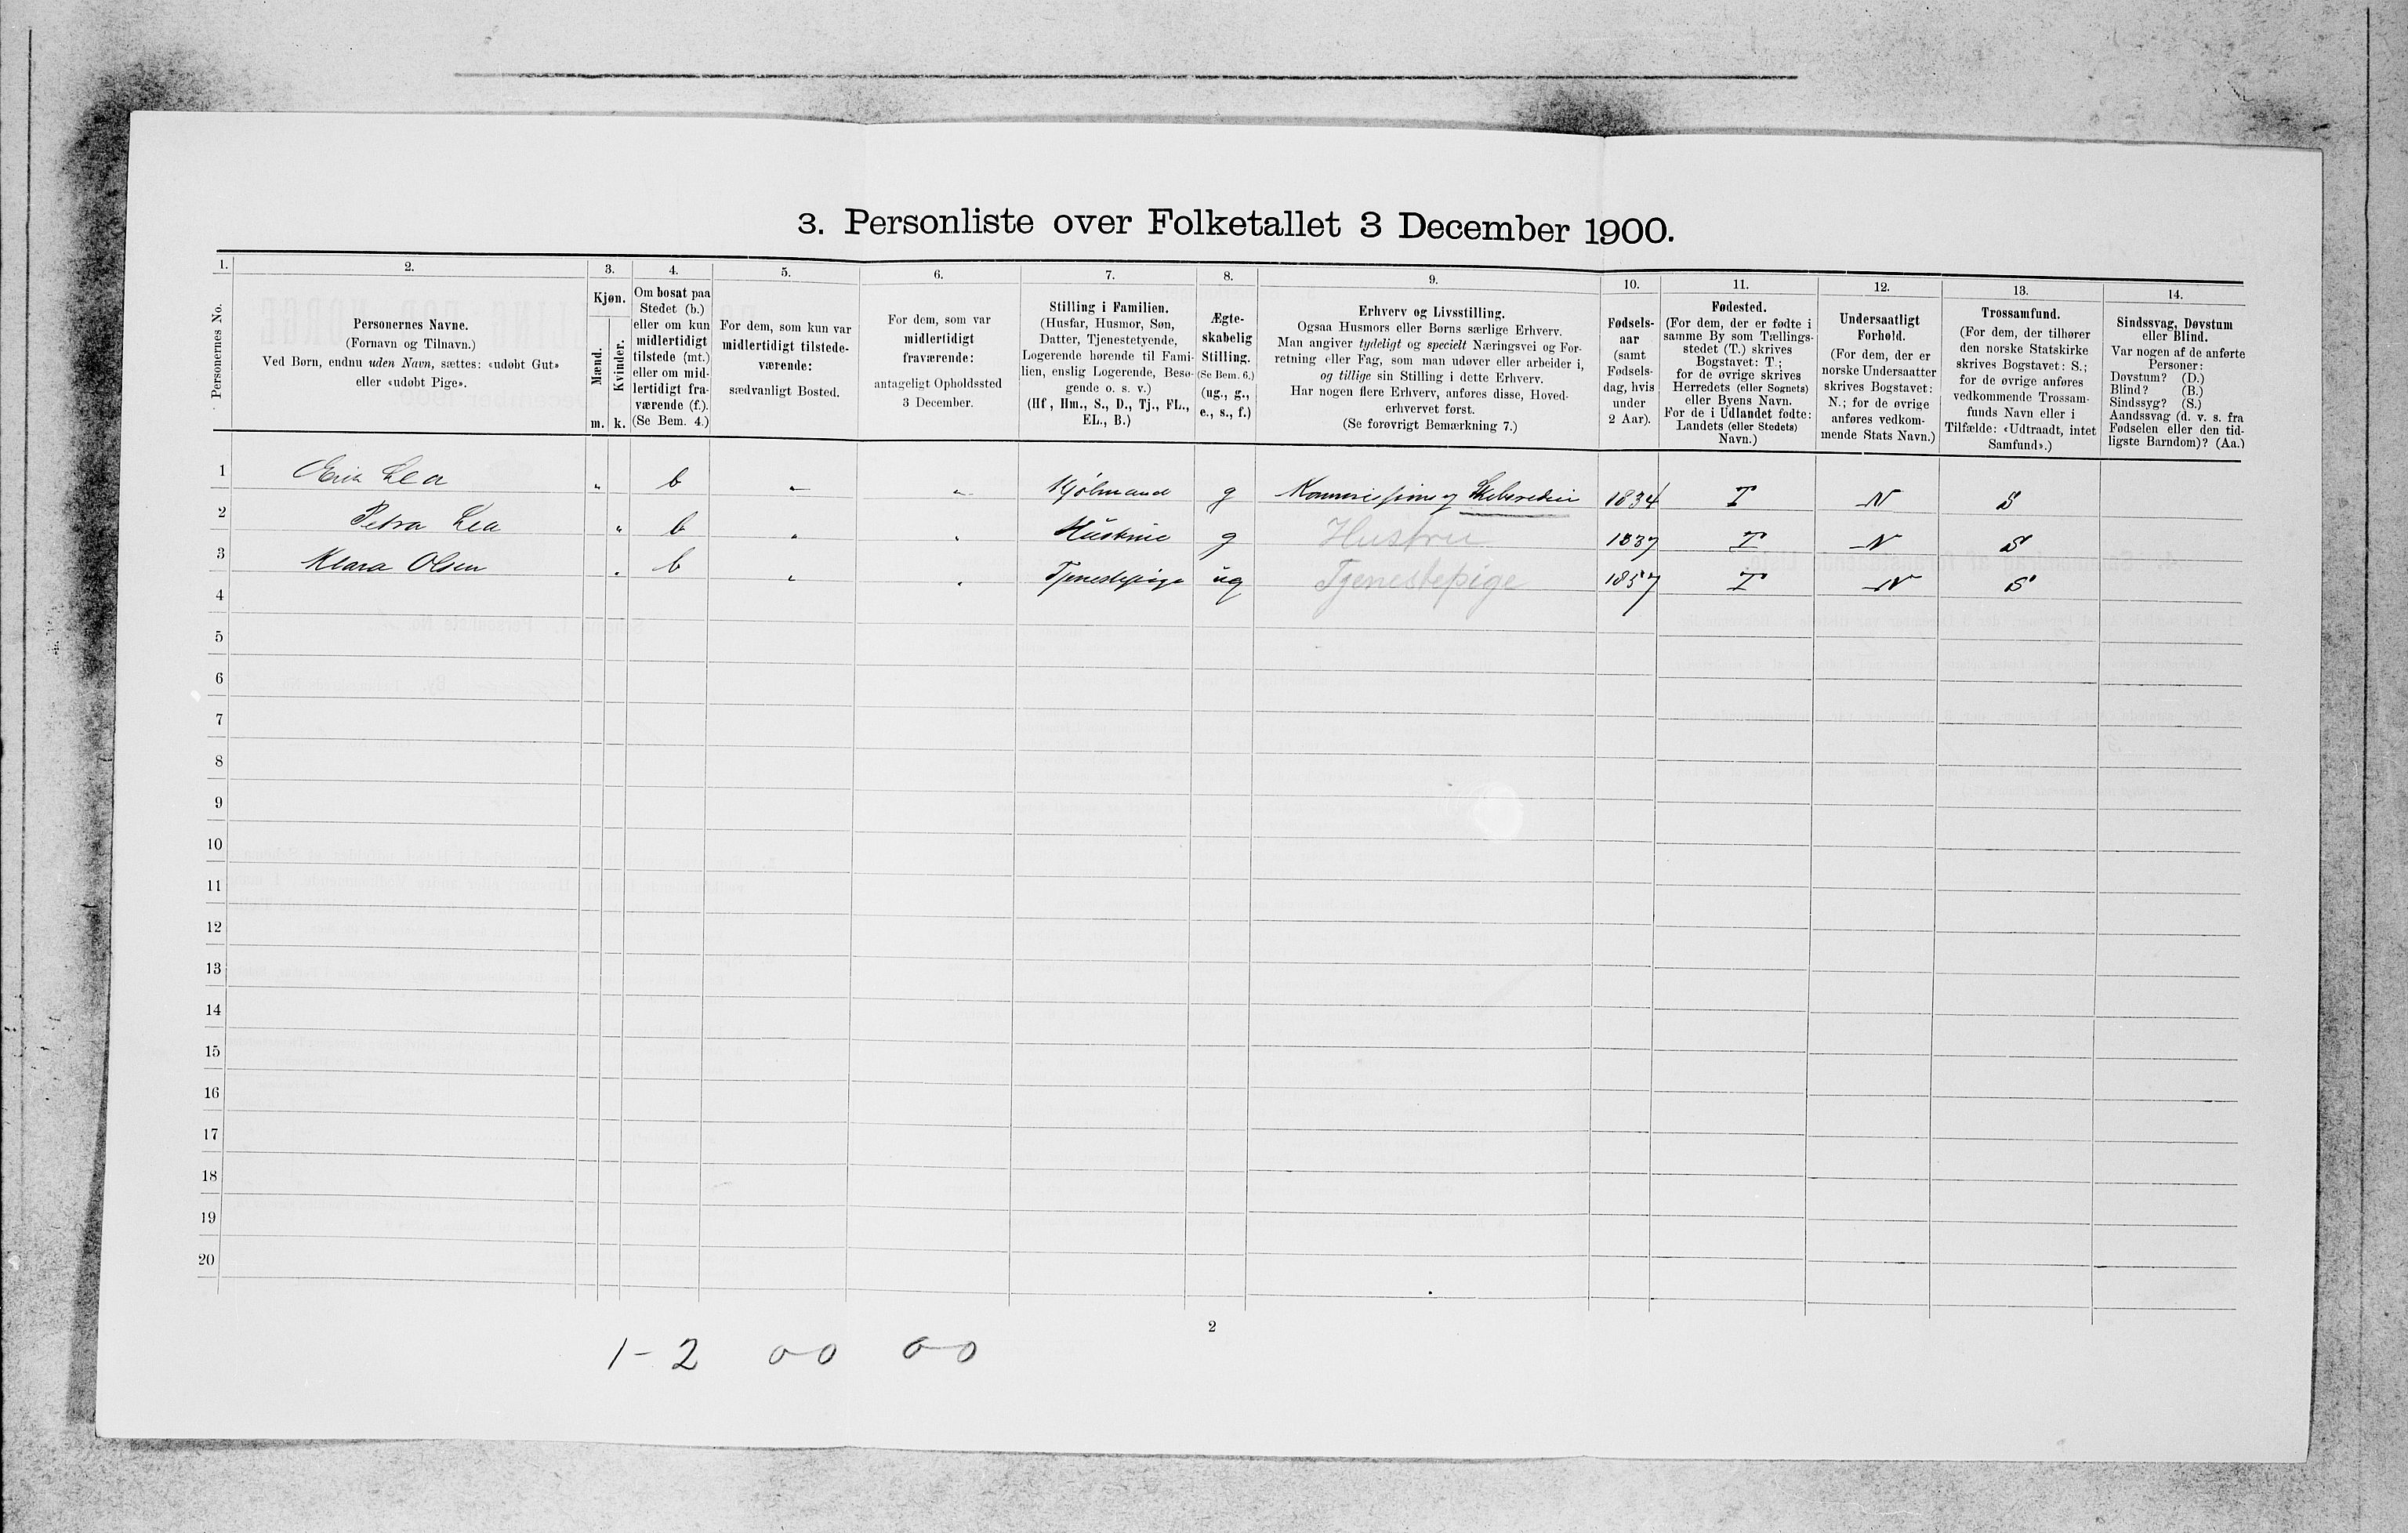 3. Personliste over Folketallet 3 December 1900.
1. 2. 3. 4. 5. 6. 7. 8. 9. 10. 11. 12. 13. 14.
Personernes No.
Personernes Navne.
(Fornavn og Tilnavn.)
Ved Børn, endnu uden Navn, sættes: «udøbt Gut»
eller «udøbt Pige».
Kjøn.
Mænd.
Kvinder.
m. k.
Om bosat paa
Stedet (b.)
eller om kun
midlertidigt
tilstede (mt.)
eller om mid-
lertidigt fra-
værende (f.).
(Se Bem. 4.)
For dem, som kun var
midlertidigt tilstede-
værende:
sædvanligt Bosted.
For dem, som var
midlertidigt
fraværende:
antageligt Opholdssted
3 December.
Stilling i Familien.
(Husfar, Husmor, Søn,
Datter, Tjenestetyende,
Logerende hørende til Fami-
lien, enslig Logerende, Besø-
gende o. s. v.)
(Hf., Hm., S., D., Tj., FL.,
EL., B.)
Ægte-
skabelig
Stilling.
(Se Bem. 6.)
(ug., g.,
e., s., f.)
Erhverv og Livsstilling.
Ogsaa Husmors eller Børns særlige Erhverv.
Man angiver tydeligt og specielt Næringsvei og For-
retning eller Fag, som man udøver eller arbeider i,
og tillige sin Stilling i dette Erhverv.
Har nogen flere Erhverv, anføres disse, Hoved-
erhvervet først.
(Se forøvrigt Bemærkning 7.)
Fødsels-
aar
(samt
Fødsels-
dag, hvis
under
2 Aar).
Fødested.
(For dem, der er fødte i
samme By som Tællings-
stedet (T.) skrives
Bogstavet: T.;
for de øvrige skrives
Herredets (eller Sognets)
eller Byens Navn.
For de i Udlandet fødte:
Landets (eller Stedets)
Navn.)
Undersaatligt
Forhold.
(For dem, der er
norske Undersaatter
skrives Bogstavet:
N.; for de øvrige
anføres vedkom-
mende Stats Navn.)
Trossamfund.
(For dem, der tilhører
den norske Statskirke
skrives Bogstavet: S.;
for de øvrige anføres
vedkommende Trossam-
funds Navn eller i
Tilfælde: «Udtraadt, intet
Samfund».)
Sindssvag, Døvstum
eller Blind.
Var nogen af de anførte
Personer:
Døvstum? (D.)
Blind? (B.)
Sindssyg? (S.)
Aandssvag (d. v. s. fra
Fødselen eller den tid-
ligste Barndom)? (Aa.)
1 Erik Lea " b " " g 1834 T N S
2 Petra Lea " b " " Hustrue g Hustru 1837 T N S
3 Klara Olsen " b " " Tjenestepige ug Tjenestepige 1857 T N S
4
5
6
7
8
9
10
11
12
13
14
15
16
17
18
19
20
2
1-2 0-0 0-0